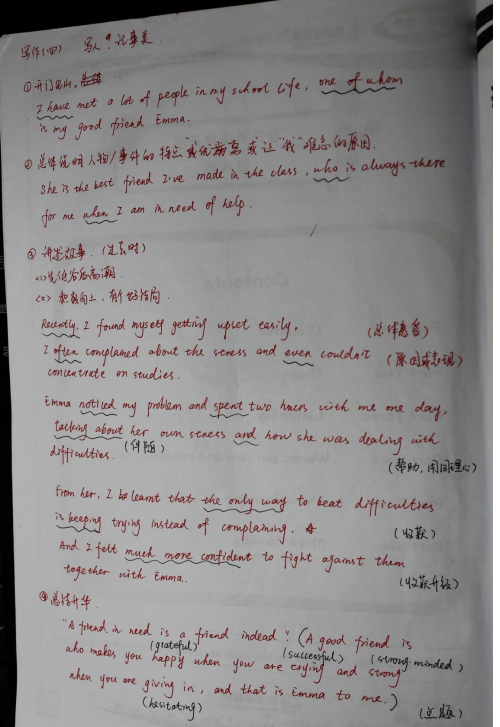 写作(四) 写人&记事类
①开门见山,总结
I have met a lot of people in my school life, one of whom
is my good friend Emma.
②总体说明人物/事件的特点或优势或让"我"难忘的原因.
She is the best friend I've made in the class, who is always there
for me when I am in need of help.
③ 讲述故事. (过去时)
<1>先低谷后高潮.
<2> 积极向上,有个好结局.
Recently, I found myself getting upset easily. (总体概否)
I often complained about the stress and even couldn't (原因或表现)
concentrate on studies.
Emma noticed my problem and spent two hours with me one day,
talking about her own stress and how she was dealing with
difficulties. (伴随)
(帮助,用同理心)
From her, I learnt that the only way to beat difficulties
is keeping trying instead of complaining. (收获)
And I felt much more confident to fight against them
together with Emma. (收获升级)
④总结升华.
"A friend in need is a friend indeed". (A good friend is
(grateful) (successful) (strong-minded)
who makes you happy when you are crying and strong
when you are giving in, and that is Emma to me.)
(hesitating) (点题)